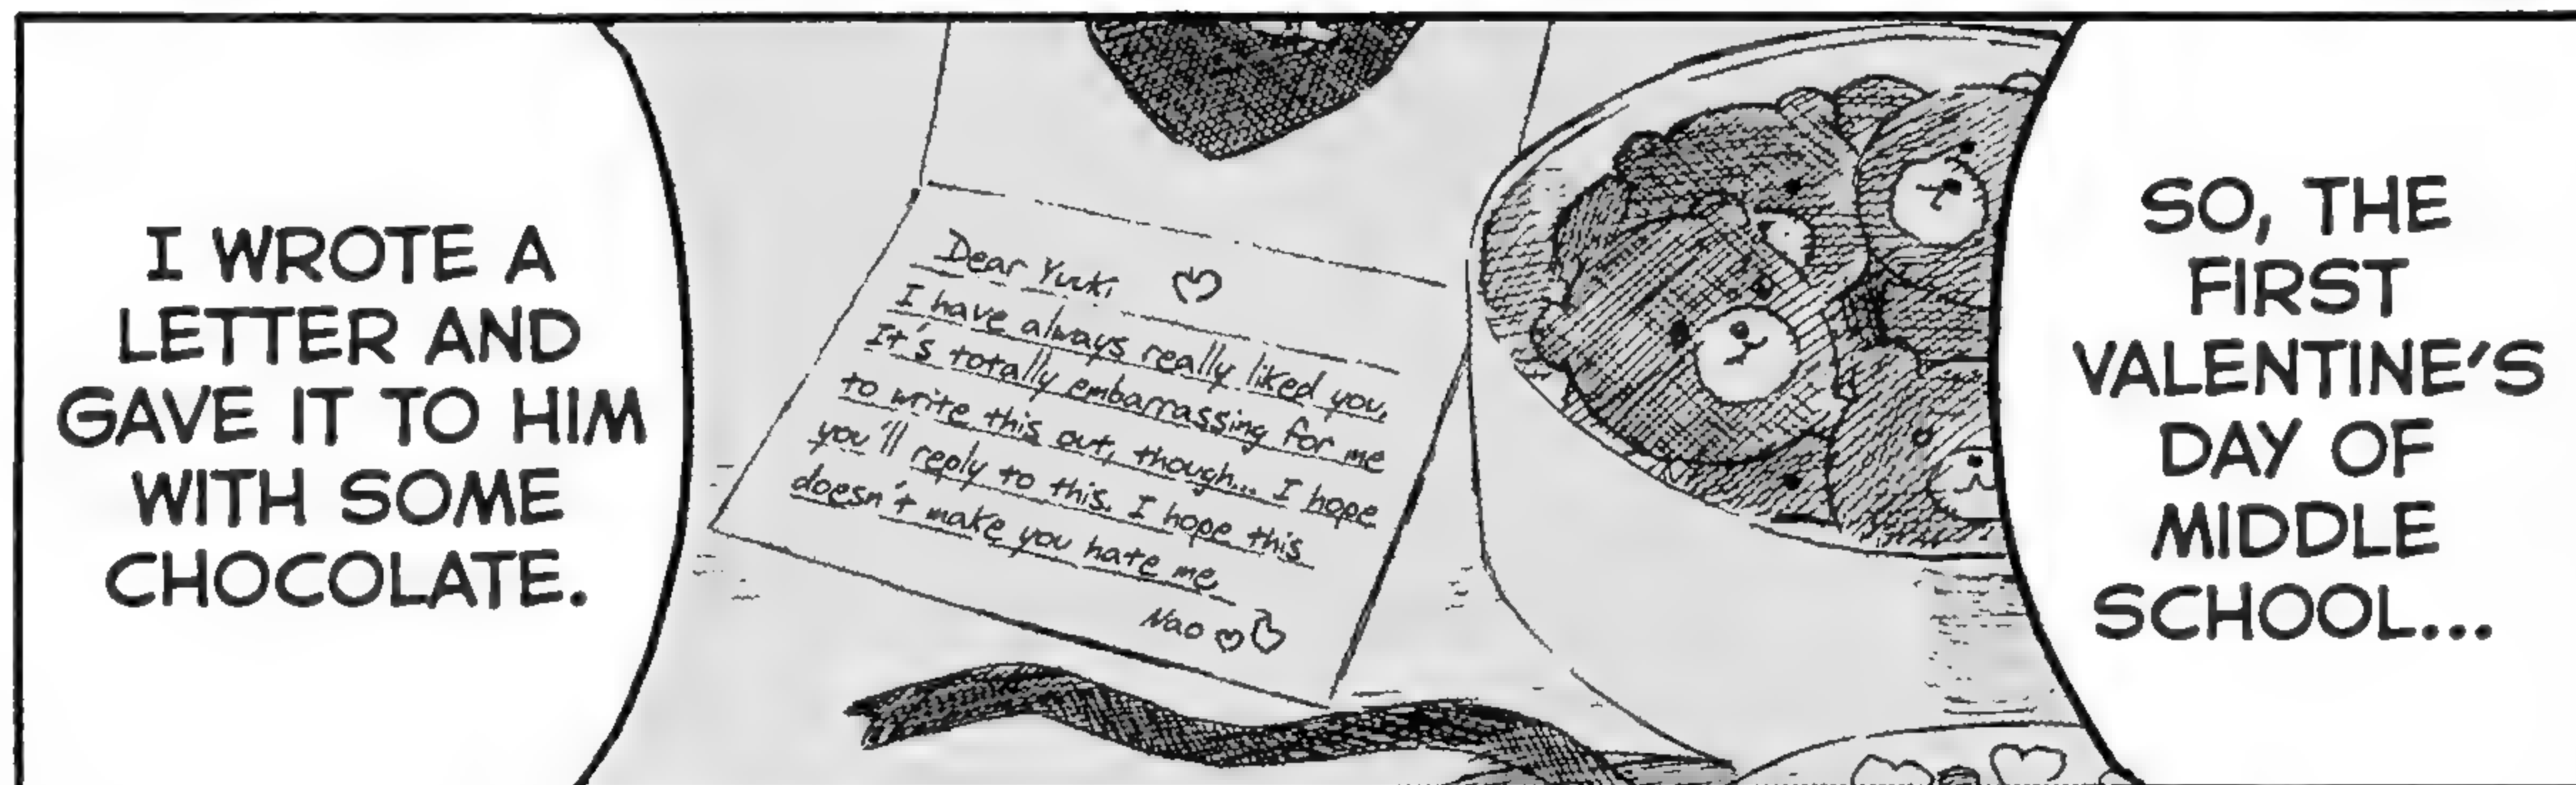 SO, THE
FIRST
VALENTINE'S
DAY OF
MIDDLE
SCHOOL...
Dear Yuuki ♡
I have always really liked you.
It's totally embarrassing for me
to write this out, though... I hope
you'll reply to this. I hope this
doesn't make you hate me.
Nao ♡♡
I WROTE A
LETTER AND
GAVE IT TO HIM
WITH SOME
CHOCOLATE.